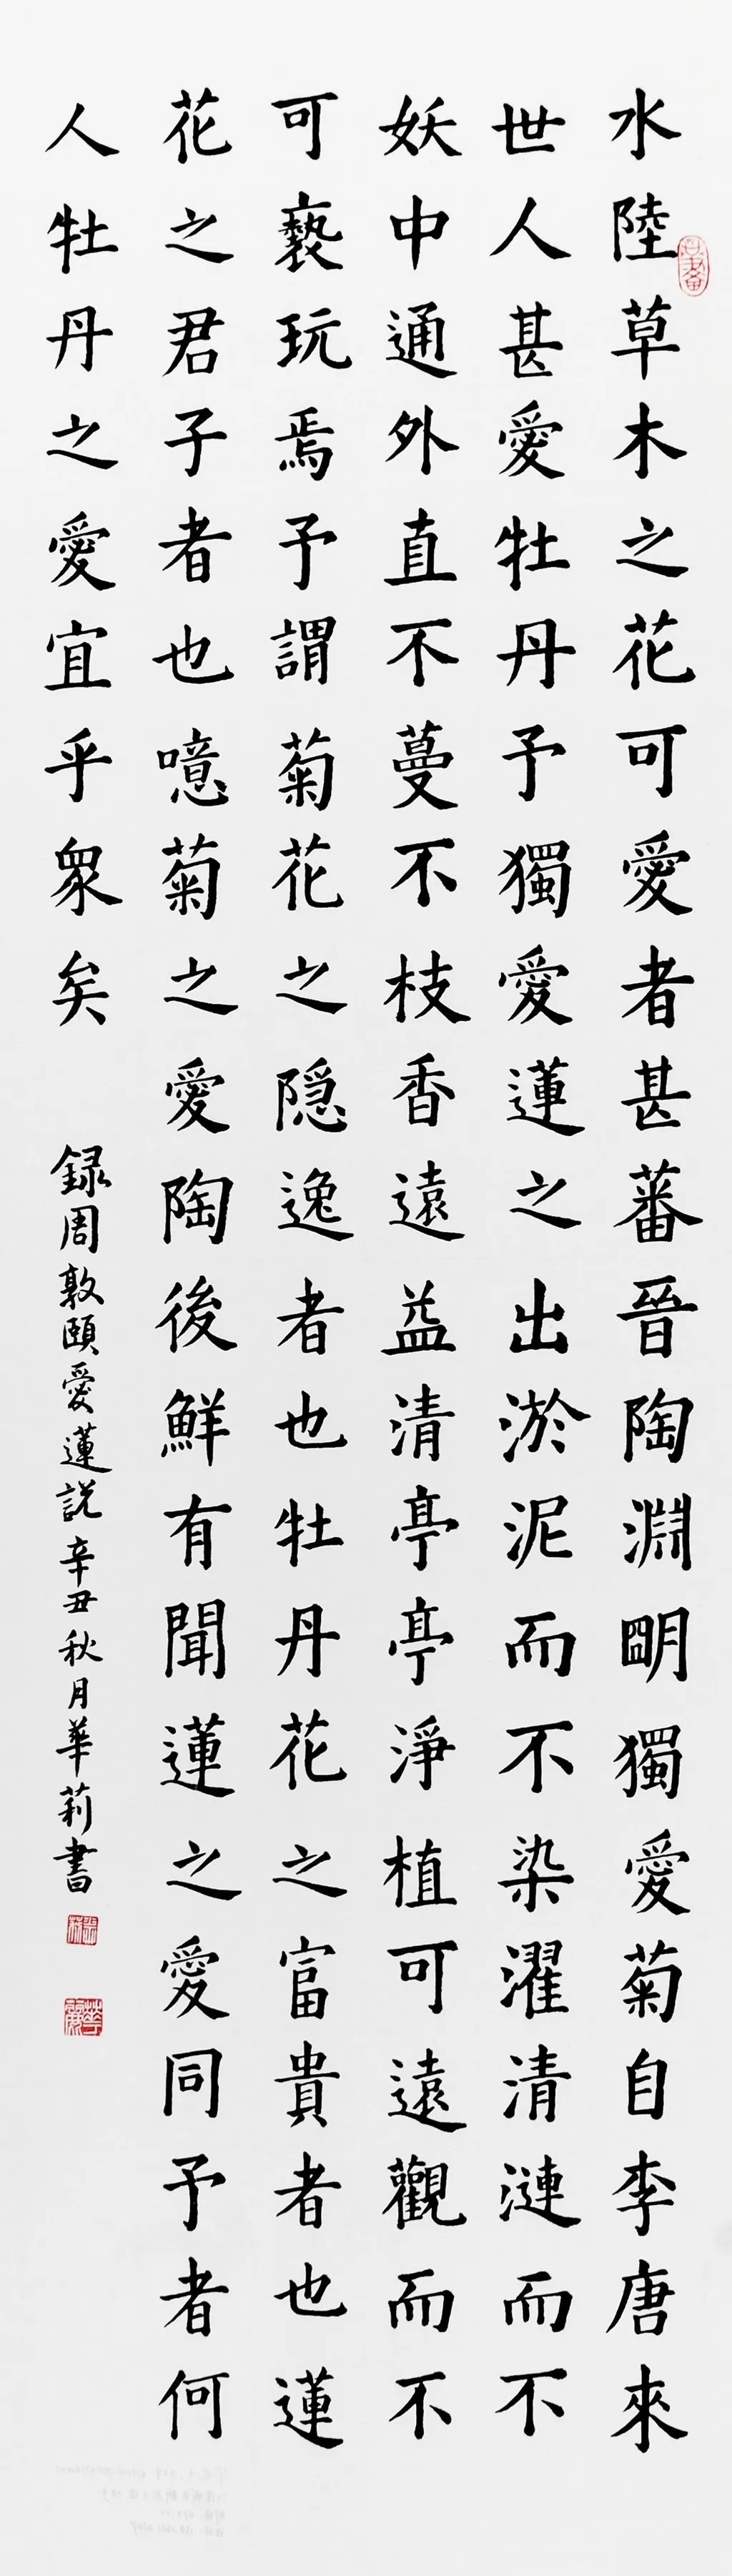 水陸草木之花可愛者甚蕃晉陶淵明獨愛菊自李唐來
世人甚愛牡丹予獨愛蓮之出淤泥而不染濯清漣而不
妖中通外直不蔓不枝香遠益清亭亭淨植可遠觀而不
可褻玩焉予謂菊花之隐逸者也牡丹花之富貴者也蓮
花之君子者也噫菊之愛陶後鮮有聞蓮之愛同予者何
人牡丹之愛宜乎眾矣
録周敦頤愛蓮說辛丑秋月華莉書